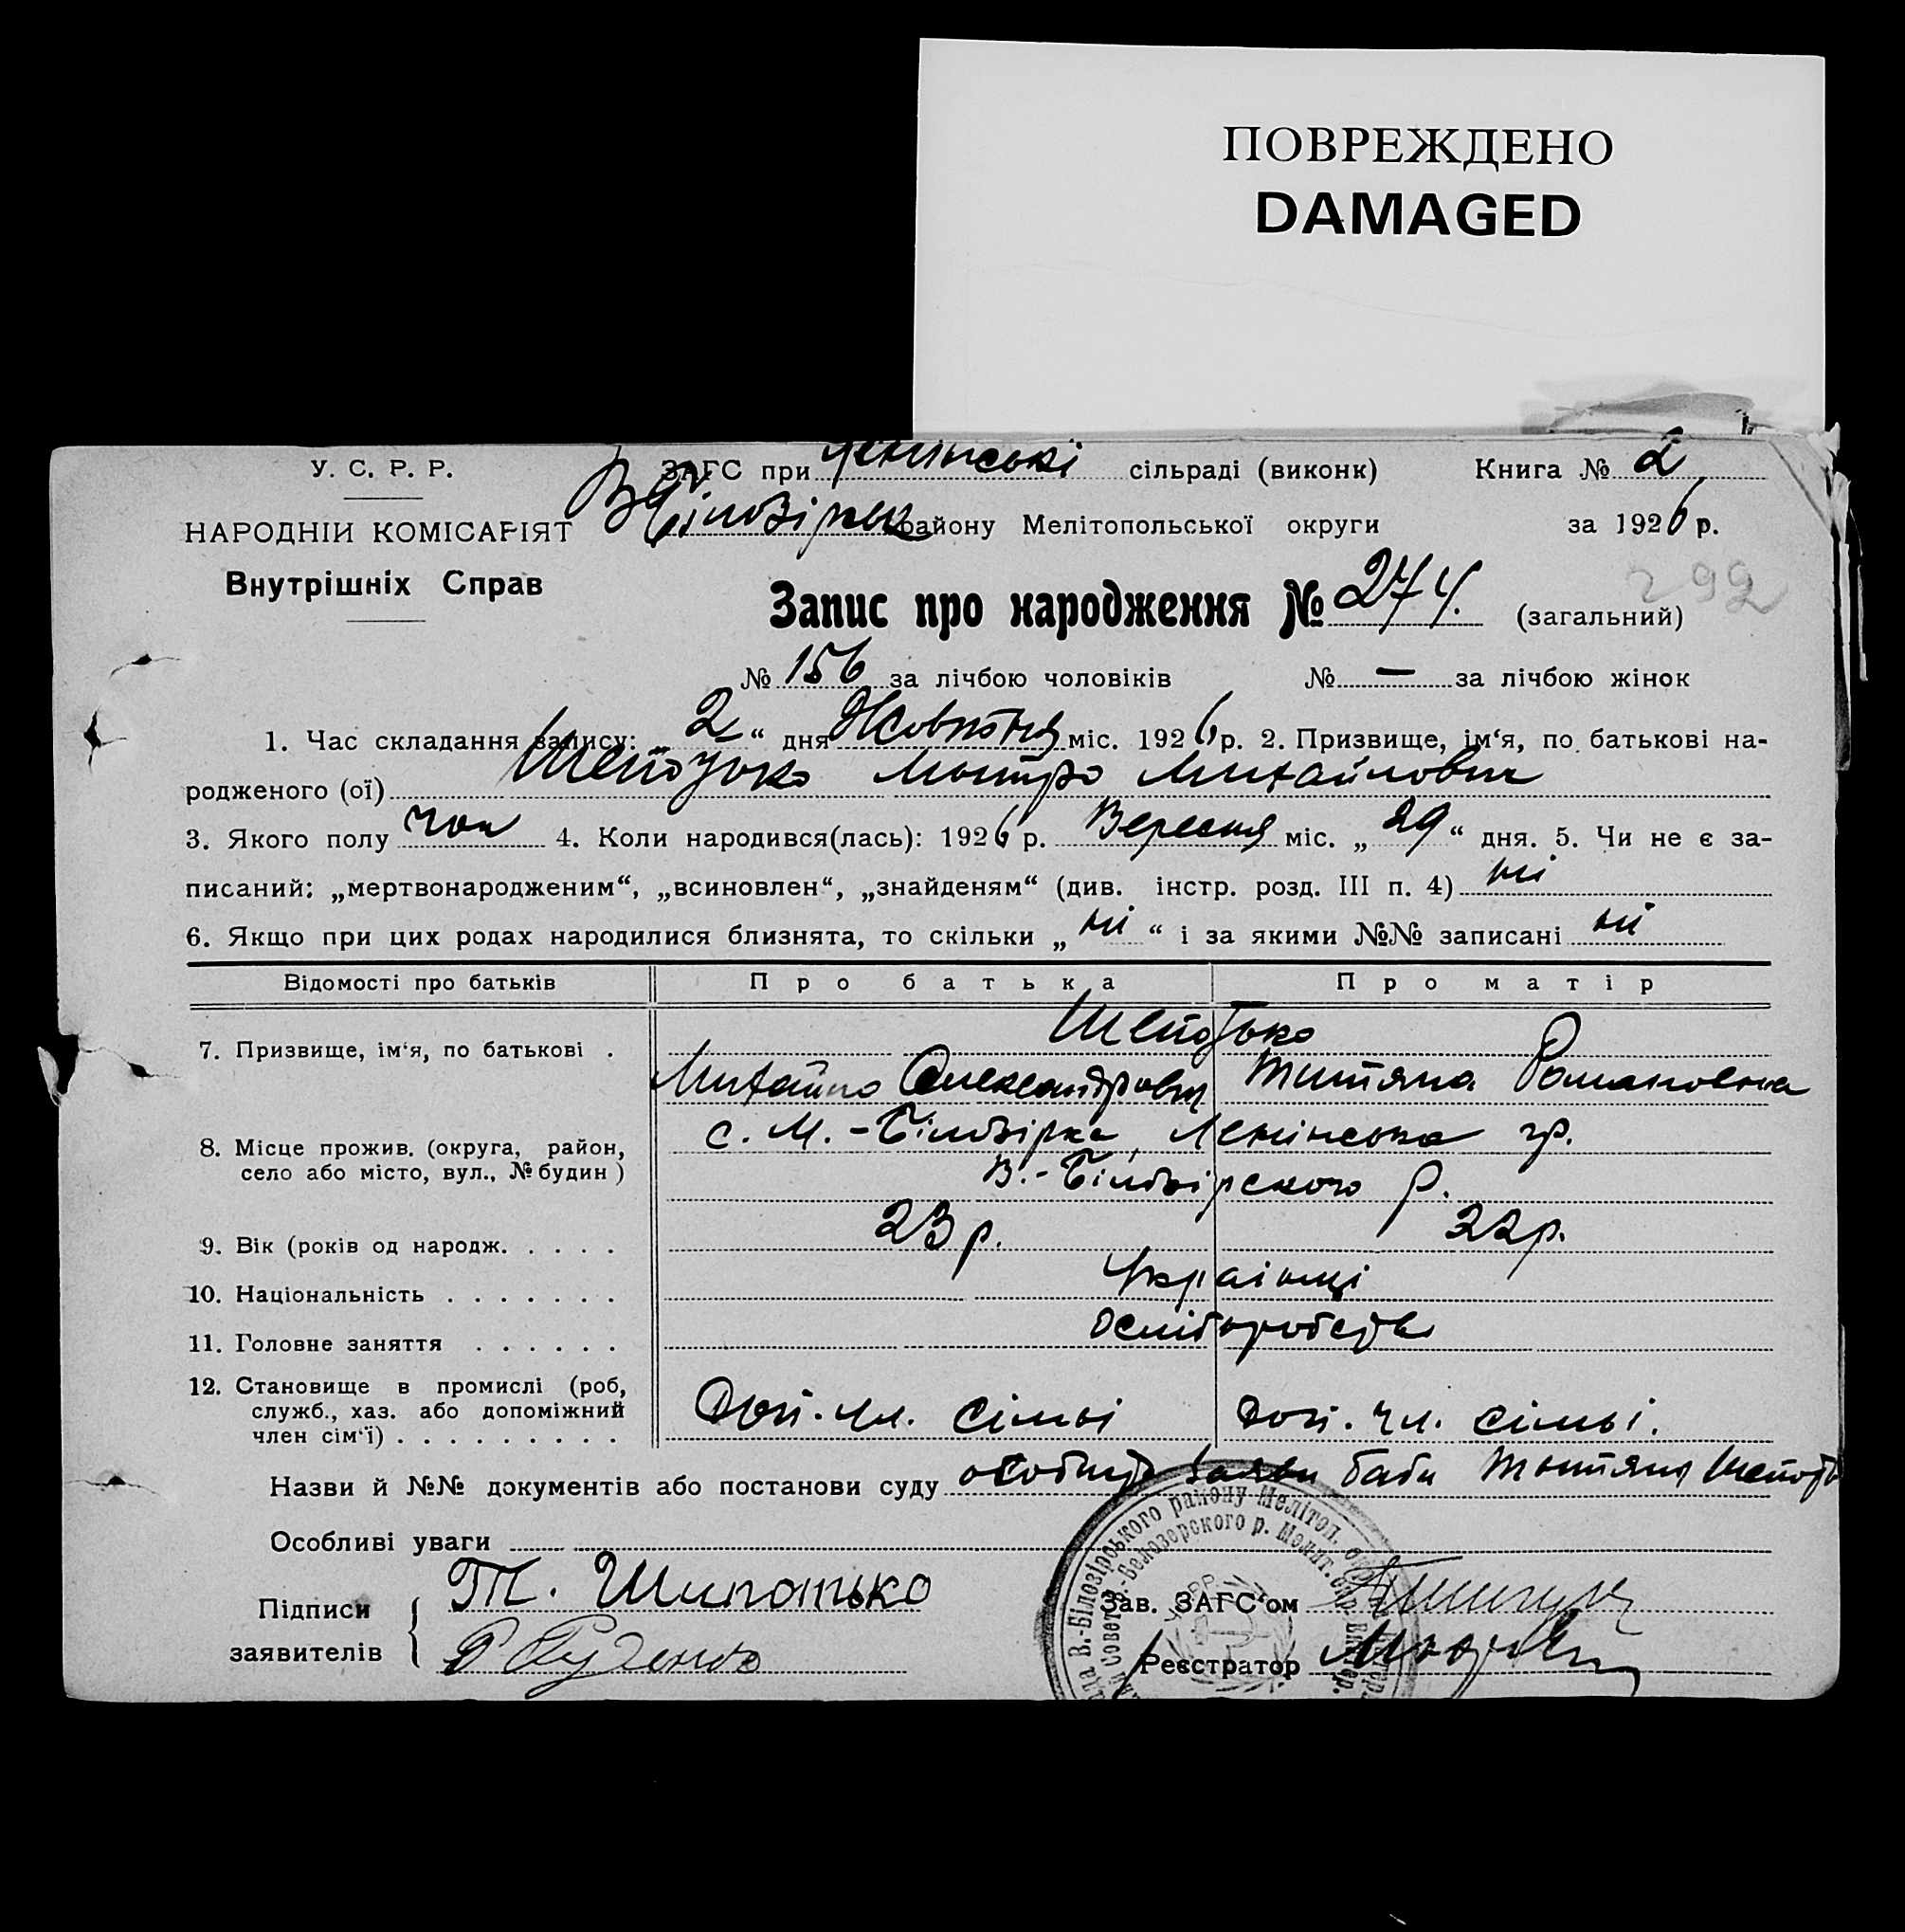 ПОВРЕЖДЕНО
DAMAGED
У. С. Р. Р.
ЗАГС при Ленінські сільраді (виконк) Книга № 2
НАРОДНІЙ КОМІСАРІЯТ
району Мелітопольської округи за 1926 р.
Внутрішніх Справ
292
Запис про народження № 274. (загальний)
№ 156 за лічбою чоловіків № — за лічбою жінок
1. Час складання запису: 2 “ дня Жовтня міс. 1926 р. 2. Призвище, ім‘я, по батькові на-
родженого (ої) Шепотько Митро Михайлович
3. Якого полу чол 4. Коли народився(лась): 1926 р. Вересня міс. „ 29 “ дня. 5. Чи не є за-
писаний: „мертвонародженим“, „всиновлен“, „знайденям“ (див. інстр. розд. III п. 4) ні
6. Якщо при цих родах народилися близнята, то скільки „ ні “ і за якими №№ записані ні
Відомості про батьків Про батька Про матір
Шепотько
7. Призвище, ім‘я, по батькові .
Михайло Олександрович Титяна Романовна
с. М.-Білозірка, Ленінська
8. Місце прожив. (округа, район,
село або місто, вул., № будин )
В.-Білозірского р.
9. Вік (років од народж. . . . . 23 р. 22 р.
10. Національність . . . . . . . Українці
11. Головне заняття . . . . . .
12. Становище в промислі (роб,
служб., хаз. або допоміжний
член сім‘ї) . . . . . . . . . Доп. чл. сімьі Доп. чл. сімьі.
Назви й №№ документів або постанови суду заяви баби Титяни
Особливі уваги
Підписи
заявителів
Т. Шипотько
Р Руденко
Зав. ЗАГС‘ом
Реєстратор
В.-Білозірського району Мелітоп.
В.-Белозерского р. Мелит. окр.